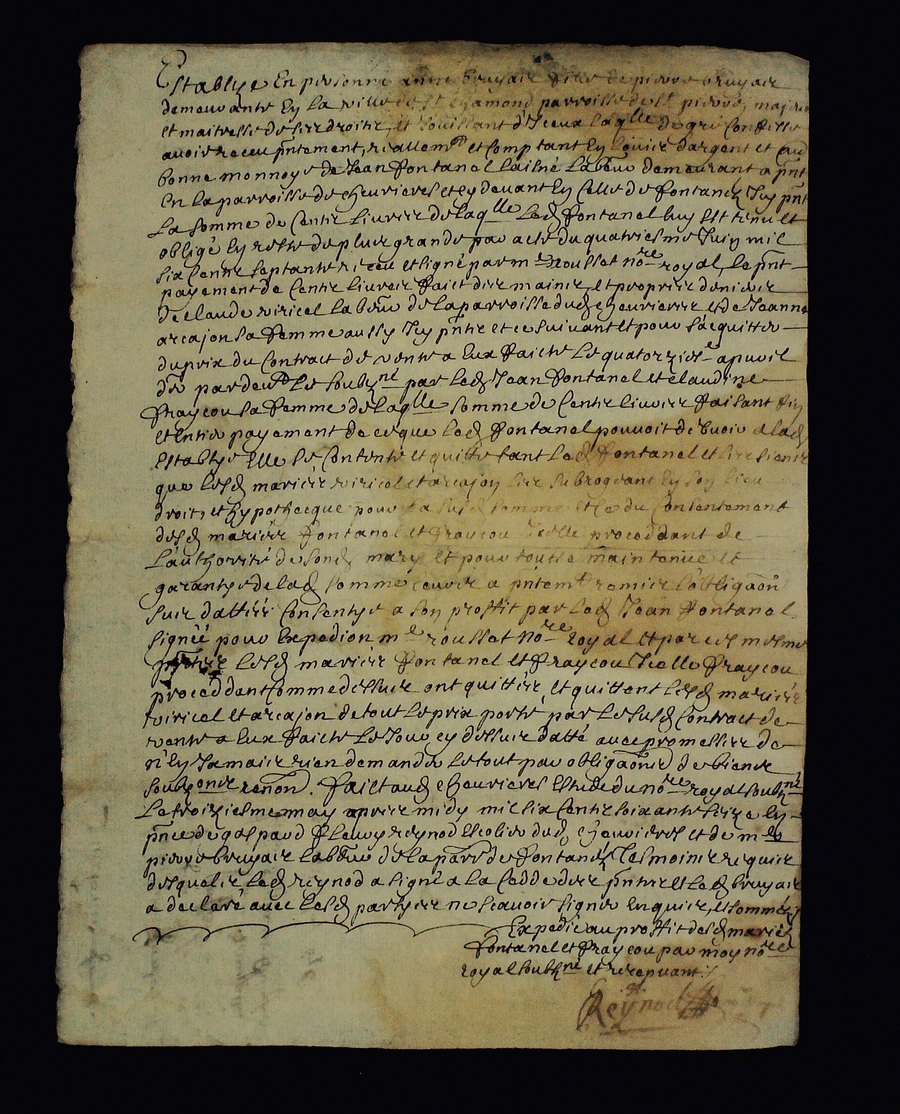 Establye En personne anne bruyair fille de pierre bruyair
demeurante En la ville de St chamond parroisse de St pierre, majeure
et maitresse de ses droitz, et Jouissant d'Iceux laqlle de gré Confesse
avoir receu pntement, reallemt et Comptant En louis d'argent et au
bonne monnoye de Jean fontanel laisné labeur demeurant a pnt
En la parroisse de chevrieres et cy devant En Celle de fontanes Icy pnt
La somme de Cent livres de laqlle led fontanel luy est tenu et
obligé En reste de plus grande par acte du quatriesme Juin mil
six Cent septante receu et signé par me roussat nore royal, le pnt
payement de Cent livres faict des mains, et propres deniers
de claude viricel labeur de la parroisse dud chevrieres et de Jeanne
arcajon sa femme aussy Icy pntz et ce suivant et pour s'acquitter
du prix du Contract de vente a Eux faicte le quatorzies.e apvril
der par devt le soubzné par led Jean fontanel et claudine
frayçou sa femme de laqlle somme de Cent livres faisant fin
et entier payement de ce que led fontanel pouvoit debvoir a lad
Establye Elle se Contente et quitte tant led fontanel et les siens
que lesd mariés viricel et arcajon les subrogeant En son lieu
droit, et hypothecque pour la susd somme et ce du Consentement
desd mariés fontanel et frayçou Icelle proceddant de
L'authorité de sond mary et pour toutte maintenue et
garantye de lad somme a pntemt remis l'obligaon
sus dattée Consentye a son proffit par led Jean fontanel
signée pour Expedion me roussat nore royal et par ces mesmes
pntes lesd mariés fontanel et frayçou Icelle frayçou
proceddant Comme dessus ont quittés, et quittent lesd mariés
viricel et arcajon de tout le prix porté par le susd Contract de
vente a Eux faicte le Jour cy dessus datté avec promesses de
n'En Jamais rien demander le tout par obligaons de biens
soubzons renon. faict aud chevrieres Estude du nore royal soubzné
Le troiziesme may apres midy mil six Cent soixante seize En
pnce de gaspard fleury reynod Escolier dud chevrieres et de me
pierre bruyair labeur de la parre de fontanes Tesmoins requis
desquels led reynod a signé a la Cedde des pntes et led bruyair
a declaré avec lesd partyes ne scavoir signer Enquis, et sommés
Expedié au proffit desd mariés
fontanel et frayçou par moy nore
royal soubzné et recepvant ./.
Reynod